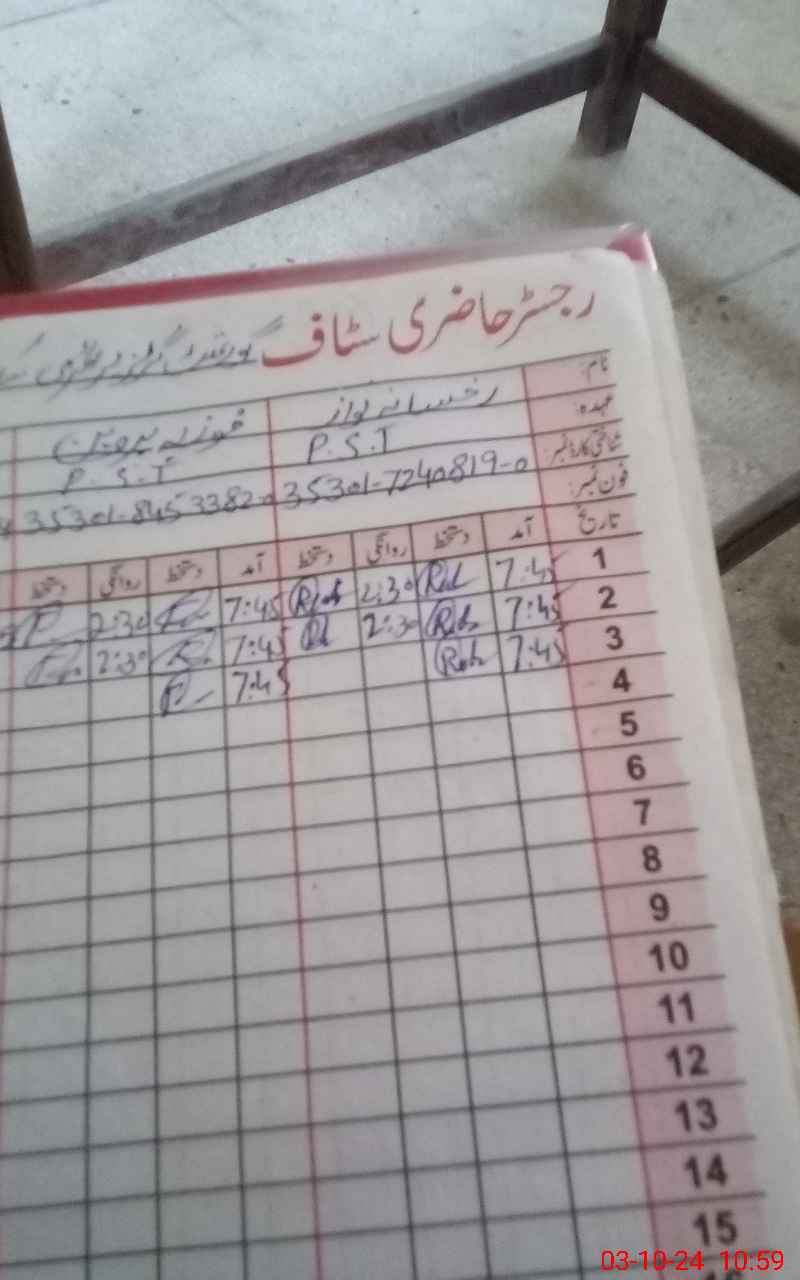 رجسٹر حاضری سٹاف گورنمنٹ گرلز پرائمری
نام: رخسانہ نواز فوزیہ پروین
عہدہ: P.S.T P.S.T
شناختی کارڈ نمبر: 35301-7240819-0 35301-8453382-0
فون نمبر:
تاریخ آمد دستخط روانگی دستخط آمد دستخط روانگی دستخط
1 7:45 2:30 7:45 2:30
2 7:45 2:30 7:45 2:30
3 7:45 7:45
4
5
6
7
8
9
10
11
12
13
14
15
03-10-24 10:59